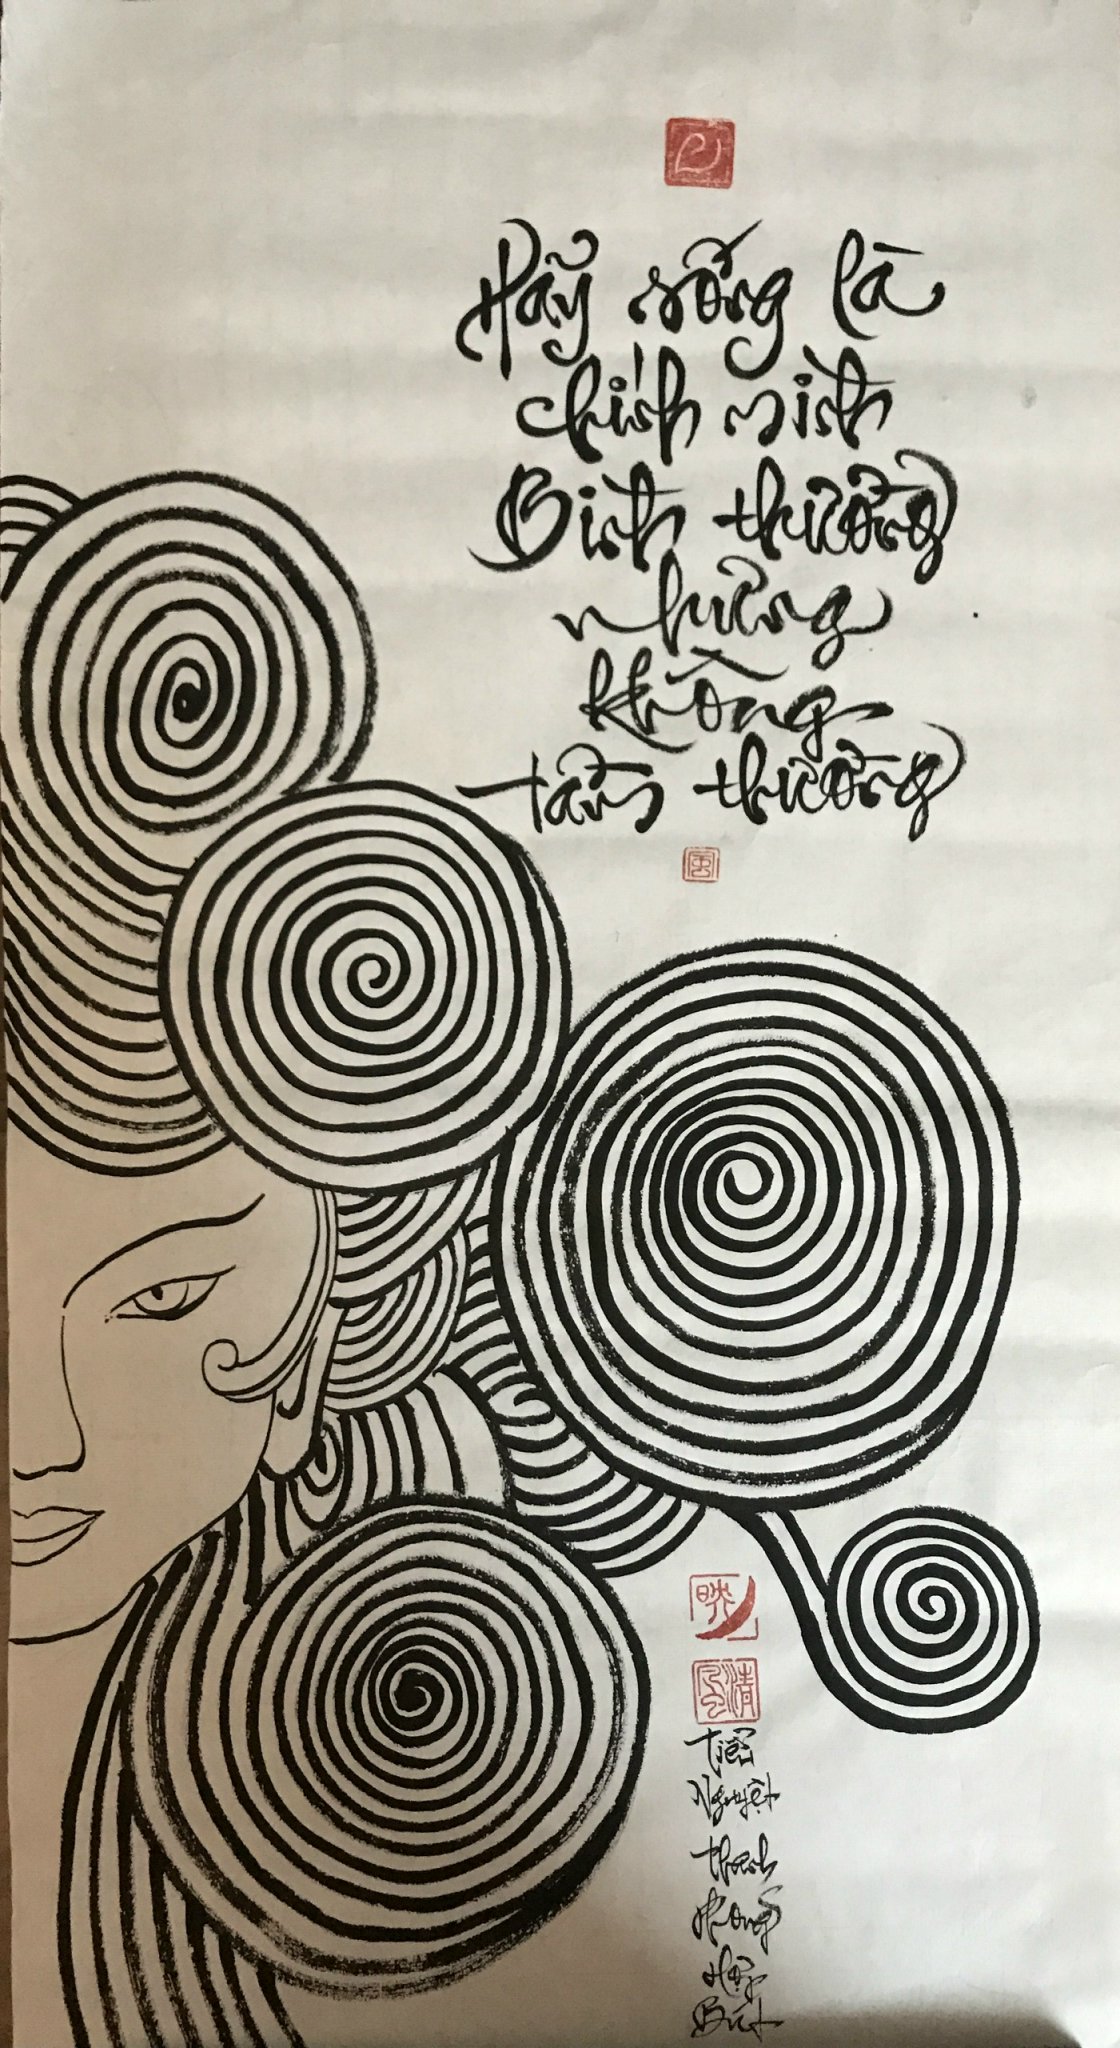 Hãy sống là
chính mình
Bình thường
nhưng
không
tầm thường
風
映
清
Tiểu
Nguyệt
Thanh
Phong
Hợp
Bút